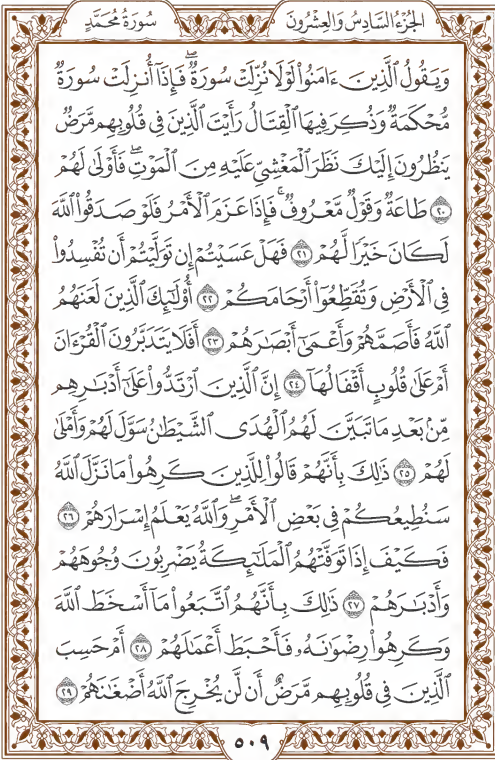 سُورَةُ مُحَمَّدٍ الجُزْءُ السَّادِسُ وَالعِشْرُونَ
وَيَقُولُ ٱلَّذِينَ ءَامَنُواْ لَوۡلَا نُزِّلَتۡ سُورَةٞۖ فَإِذَآ أُنزِلَتۡ سُورَةٞ
مُّحۡكَمَةٞ وَذُكِرَ فِيهَا ٱلۡقِتَالُ رَأَيۡتَ ٱلَّذِينَ فِي قُلُوبِهِم مَّرَضٞ
يَنظُرُونَ إِلَيۡكَ نَظَرَ ٱلۡمَغۡشِيِّ عَلَيۡهِ مِنَ ٱلۡمَوۡتِۖ فَأَوۡلَىٰ لَهُمۡ
٢٠ طَاعَةٞ وَقَوۡلٞ مَّعۡرُوفٞۚ فَإِذَا عَزَمَ ٱلۡأَمۡرُ فَلَوۡ صَدَقُواْ ٱللَّهَ
لَكَانَ خَيۡرٗا لَّهُمۡ ٢١ فَهَلۡ عَسَيۡتُمۡ إِن تَوَلَّيۡتُمۡ أَن تُفۡسِدُواْ
فِي ٱلۡأَرۡضِ وَتُقَطِّعُوٓاْ أَرۡحَامَكُمۡ ٢٢ أُوْلَٰٓئِكَ ٱلَّذِينَ لَعَنَهُمُ
ٱللَّهُ فَأَصَمَّهُمۡ وَأَعۡمَىٰٓ أَبۡصَٰرَهُمۡ ٢٣ أَفَلَا يَتَدَبَّرُونَ ٱلۡقُرۡءَانَ
أَمۡ عَلَىٰ قُلُوبٍ أَقۡفَالُهَآ ٢٤ إِنَّ ٱلَّذِينَ ٱرۡتَدُّواْ عَلَىٰٓ أَدۡبَٰرِهِم
مِّنۢ بَعۡدِ مَا تَبَيَّنَ لَهُمُ ٱلۡهُدَى ٱلشَّيۡطَٰنُ سَوَّلَ لَهُمۡ وَأَمۡلَىٰ
لَهُمۡ ٢٥ ذَٰلِكَ بِأَنَّهُمۡ قَالُواْ لِلَّذِينَ كَرِهُواْ مَا نَزَّلَ ٱللَّهُ
سَنُطِيعُكُمۡ فِي بَعۡضِ ٱلۡأَمۡرِۖ وَٱللَّهُ يَعۡلَمُ إِسۡرَارَهُمۡ ٢٦
فَكَيۡفَ إِذَا تَوَفَّتۡهُمُ ٱلۡمَلَٰٓئِكَةُ يَضۡرِبُونَ وُجُوهَهُمۡ
وَأَدۡبَٰرَهُمۡ ٢٧ ذَٰلِكَ بِأَنَّهُمُ ٱتَّبَعُواْ مَآ أَسۡخَطَ ٱللَّهَ
وَكَرِهُواْ رِضۡوَٰنَهُۥ فَأَحۡبَطَ أَعۡمَٰلَهُمۡ ٢٨ أَمۡ حَسِبَ
ٱلَّذِينَ فِي قُلُوبِهِم مَّرَضٌ أَن لَّن يُخۡرِجَ ٱللَّهُ أَضۡغَٰنَهُمۡ ٢٩
٥٠٩